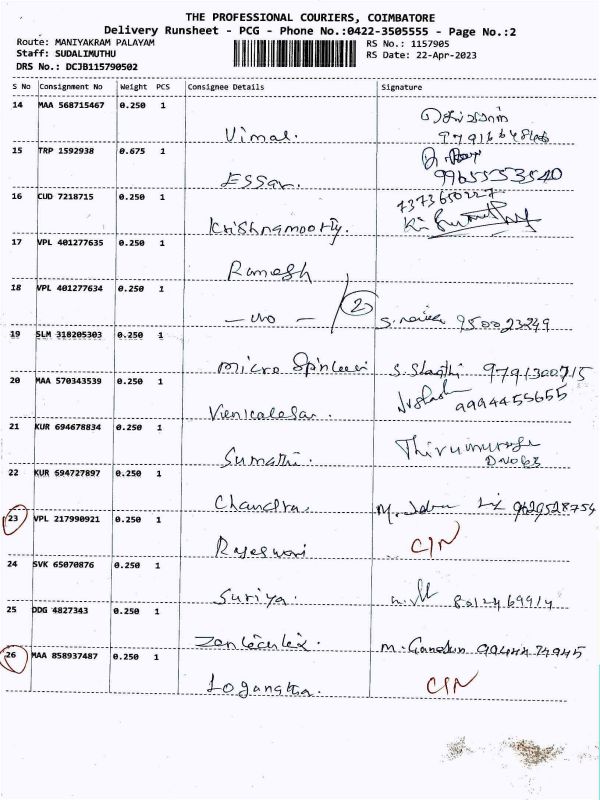 THE PROFESSIONAL COURIERS, COIMBATORE
Delivery Runsheet - PCG - Phone No.:0422-3505555 - Page No.:2
Route: MANIYAKRAM PALAYAM
RS No.: 1157905
Staff: SUDALIMUTHU
RS Date: 22-Apr-2023
DRS No.: DCJB115790502
S No Consignment No Weight PCS Consignee Details Signature
14 MAA 568715467 0.250 1
Vimal.
15 TRP 1592938 0.675 1
Essar. 9965553540
16 CUD 7218715 0.250 1 7373650227
Krishnamoorthy.
17 VPL 401277635 0.250 1
Ramesh
18 VPL 401277634 0.250 1
2 9500223249
19 SLM 318205303 0.250 1
Micro 9791300715
20 MAA 570343539 0.250 1
9994455655
21 KUR 694678834 0.250 1
Sumathi. D NO 63
22 KUR 694727897 0.250 1
Chandra. 9629528754
23 VPL 217990921 0.250 1
Rajeswari C/N
24 SVK 65070876 0.250 1
Suriya.
25 DDG 4827343 0.250 1
26 MAA 858937487 0.250 1
C/N